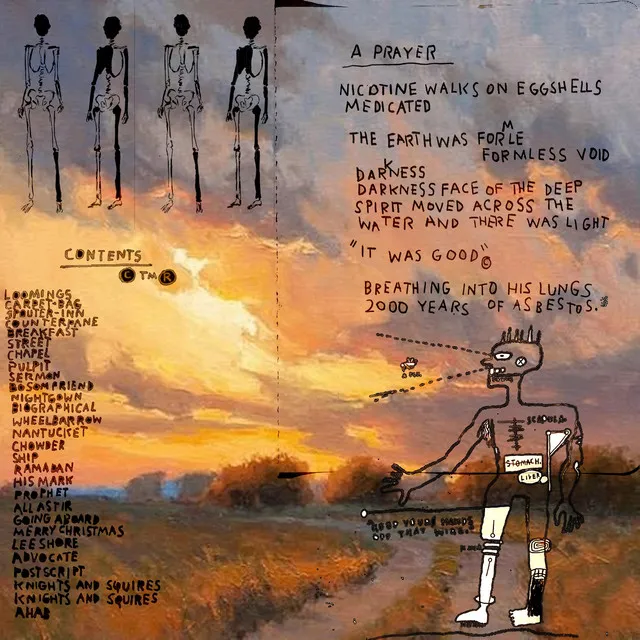 A PRAYER
NICOTINE WALKS ON EGGSHELLS
MEDICATED
THE EARTH WAS FORLE
M
FORMLESS VOID
DARNESS
K
DARKNESS FACE OF THE DEEP
SPIRIT MOVED ACROSS THE
WATER AND THERE WAS LIGHT
"IT WAS GOOD"©
BREATHING INTO HIS LUNGS
2000 YEARS OF ASBESTOS.
CONTENTS
© TM ®
LOOMINGS
CARPET-BAG
SPOUTER-INN
COUNTERPANE
BREAKFAST
STREET
CHAPEL
PULPIT
SERMON
BOSOM FRIEND
NIGHTGOWN
BIOGRAPHICAL
WHEELBARROW
NANTUCKET
CHOWDER
SHIP
RAMADAN
HIS MARK
PROPHET
ALL ASTIR
GOING ABOARD
MERRY CHRISTMAS
LEE SHORE
ADVOCATE
POSTSCRIPT
KNIGHTS AND SQUIRES
KNIGHTS AND SQUIRES
AHAB
STOMACH.
LIVER
"KEEP YOUR HANDS
OFF THAT WIRE."